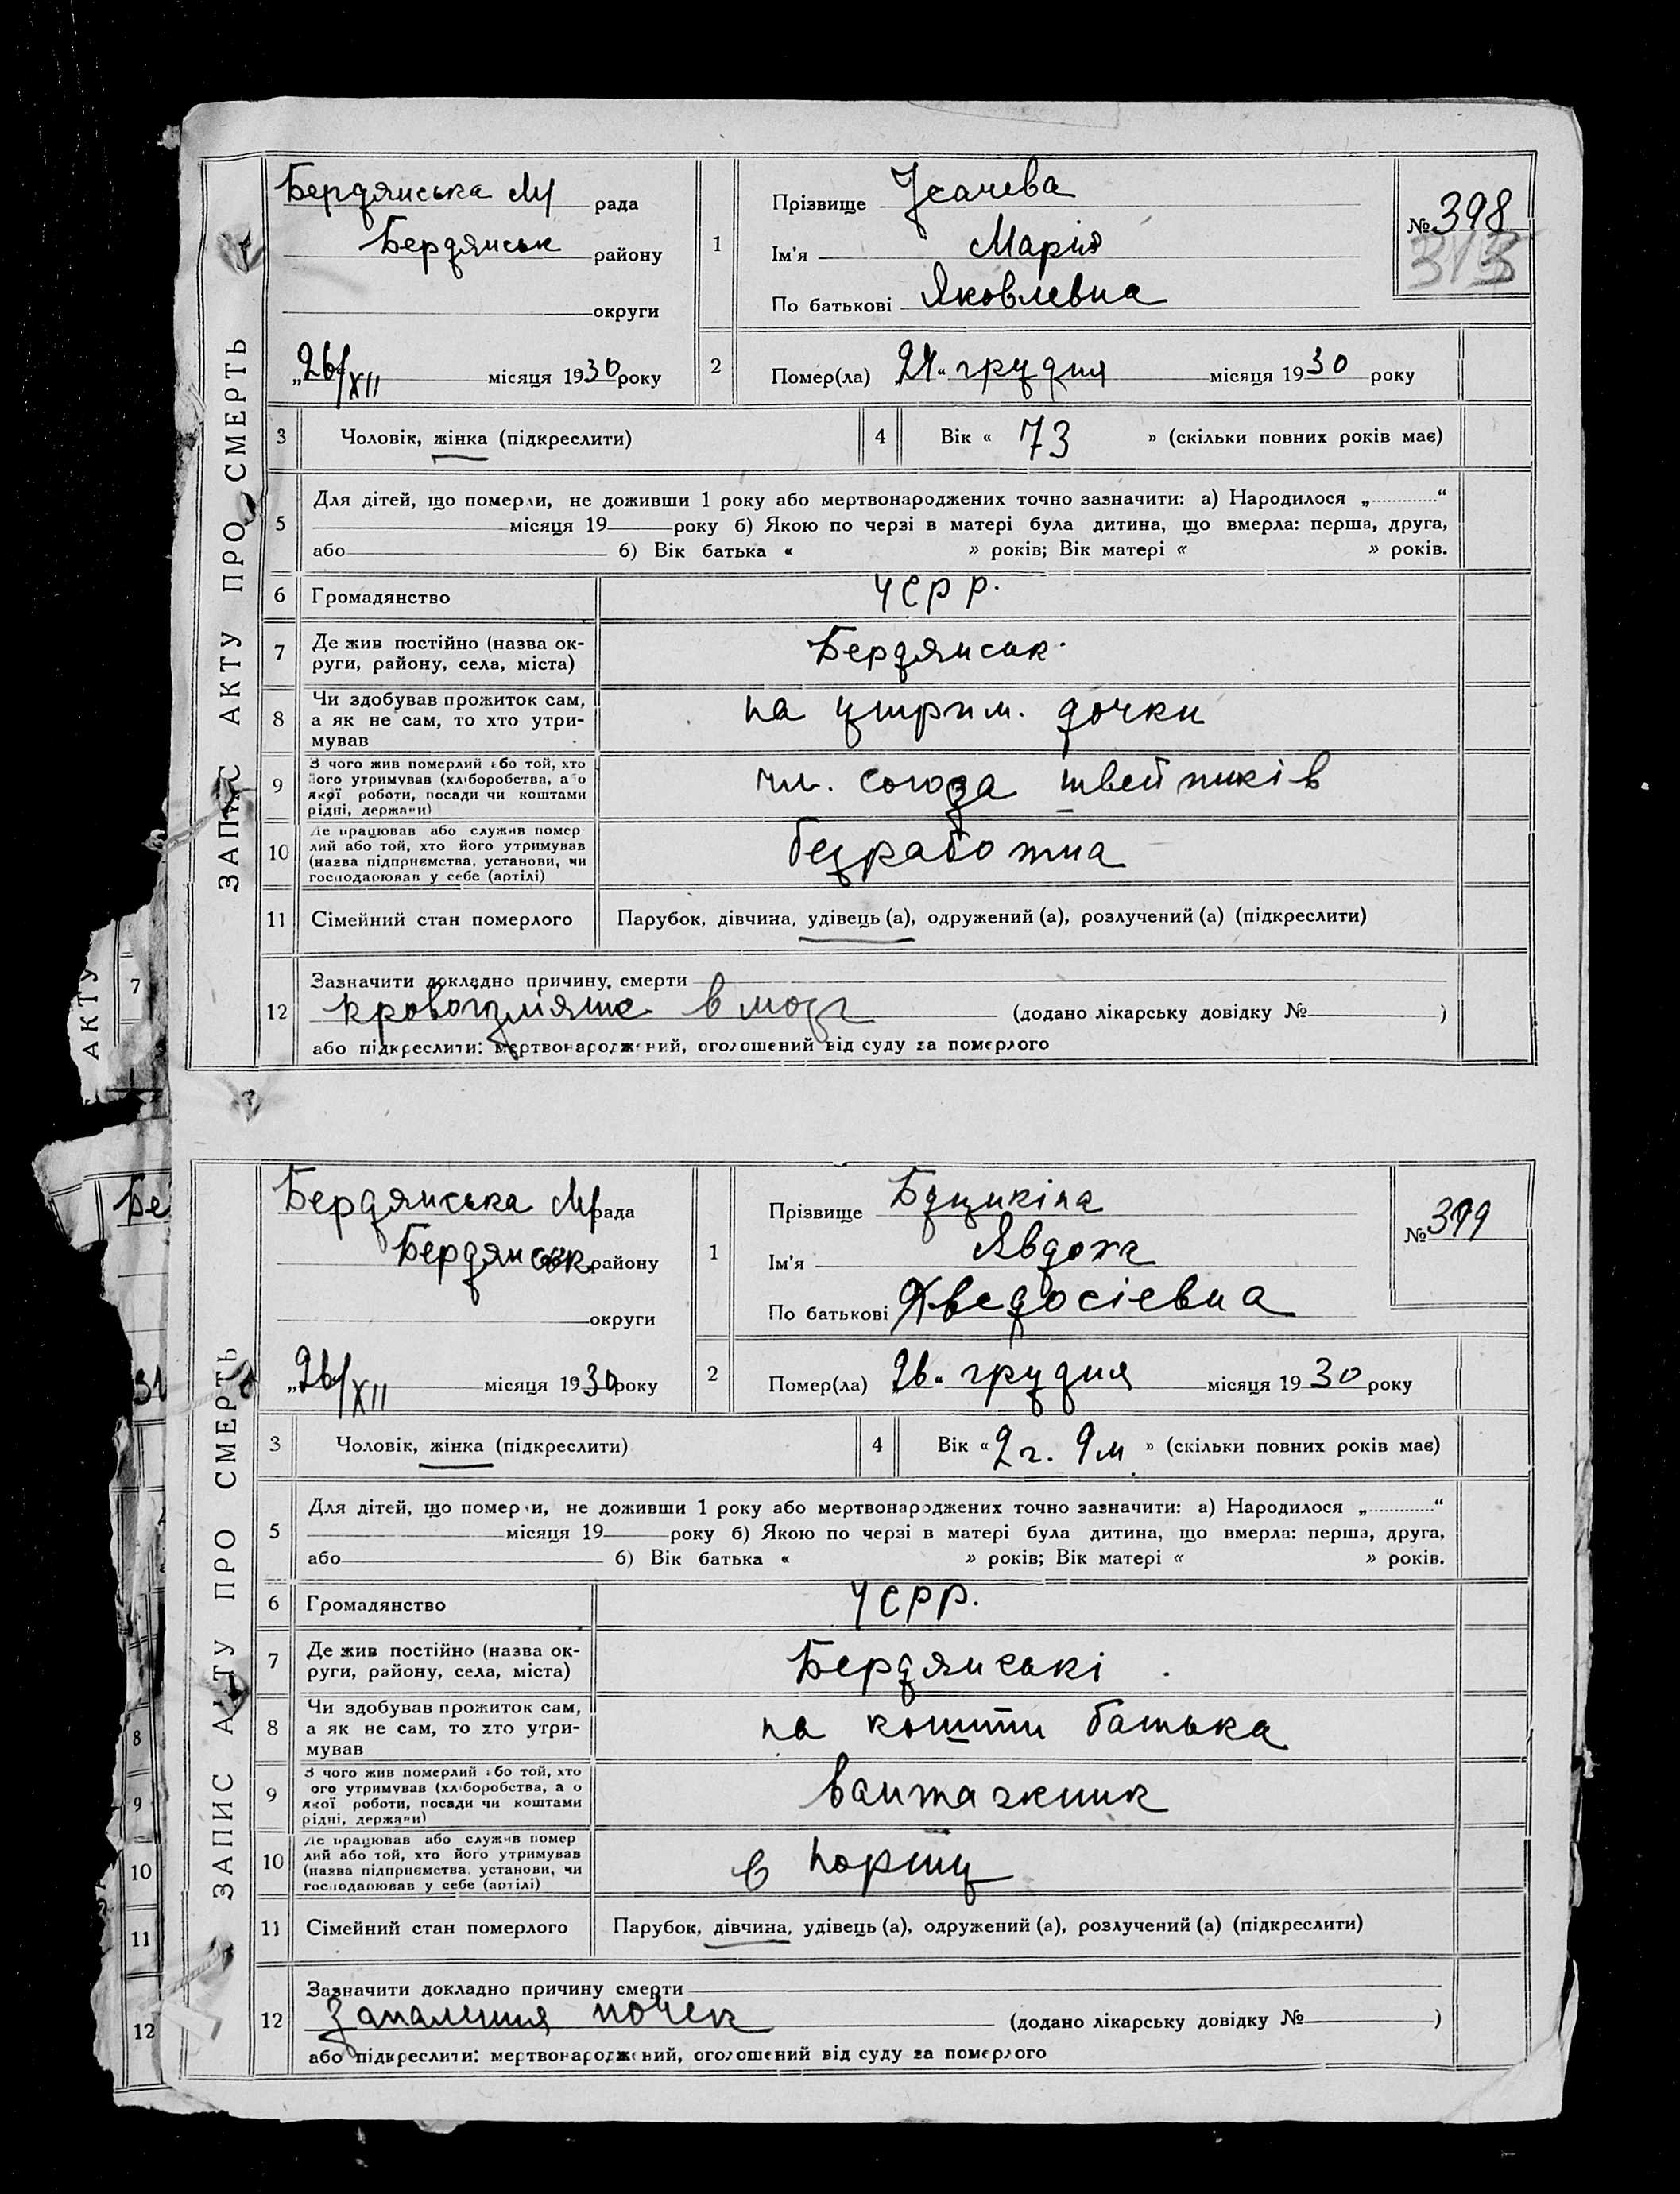 ЗАПИС АКТУ ПРО СМЕРТЬ
Бердянська М рада
Бердянськ району
округи
„26/XII місяця 1930 року
1
Прізвище Усачева
Ім'я Марія
По батькові Яковлевна
№ 398
313
2
Помер(ла) „24“ грудня місяця 1930 року
3 Чоловік, жінка (підкреслити)
4 Вік « 73 » (скільки повних років має)
5
Для дітей, що померли, не доживши 1 року або мертвонароджених точно зазначити: а) Народилося „ “
місяця 19 року б) Якою по черзі в матері була дитина, що вмерла: перша, друга,
або б) Вік батька « » років; Вік матері « » років.
6 Громадянство УСРР.
7 Де жив постійно (назва ок-
руги, району, села, міста)
Бердянськ.
8 Чи здобував прожиток сам,
а як не сам, то хто утри-
мував
на утрим. дочки
9 З чого жив померлий або той, хто
його утримував (хліборобства, або
якої роботи, посади чи коштами
рідні, держави)
чл. союза швейників
10 Де працював або служив помер
лий або той, хто його утримував
(назва підприємства, установи, чи
господарював у себе (артілі)
безработна
11 Сімейний стан померлого Парубок, дівчина, удівець (а), одружений (а), розлучений (а) (підкреслити)
12
Зазначити докладно причину смерти
в мозг (додано лікарську довідку № )
або підкреслити: мертвонароджений, оголошений від суду за померлого
ЗАПИС АКТУ ПРО СМЕРТЬ
Бердянська М рада
Бердянськ району
округи
„26/XII місяця 1930 року
1
Прізвище
Ім'я Явдоха
По батькові Хведосіевна
№ 399
2
Помер(ла) „26“ грудня місяця 1930 року
3 Чоловік, жінка (підкреслити)
4 Вік « 2 г. 9 м » (скільки повних років має)
5
Для дітей, що померли, не доживши 1 року або мертвонароджених точно зазначити: а) Народилося „ “
місяця 19 року б) Якою по черзі в матері була дитина, що вмерла: перша, друга,
або б) Вік батька « » років; Вік матері « » років.
6 Громадянство УСРР.
7 Де жив постійно (назва ок-
руги, району, села, міста)
Бердянські
8 Чи здобував прожиток сам,
а як не сам, то хто утри-
мував
на кошти батька
9 З чого жив померлий або той, хто
ого утримував (хліборобства, а о
якої роботи, посади чи коштами
рідні, держави)
вантажник
10 Де працював або служив помер
лий або той, хто його утримував
(назва підприємства, установи, чи
господарював у себе (артілі)
в порту
11 Сімейний стан померлого Парубок, дівчина, удівець (а), одружений (а), розлучений (а) (підкреслити)
12
Зазначити докладно причину смерти
запалення почек (додано лікарську довідку № )
або підкреслити: мертвонароджений, оголошений від суду за померлого
АКТУ
7
Бе
31
8
9
10
11
12